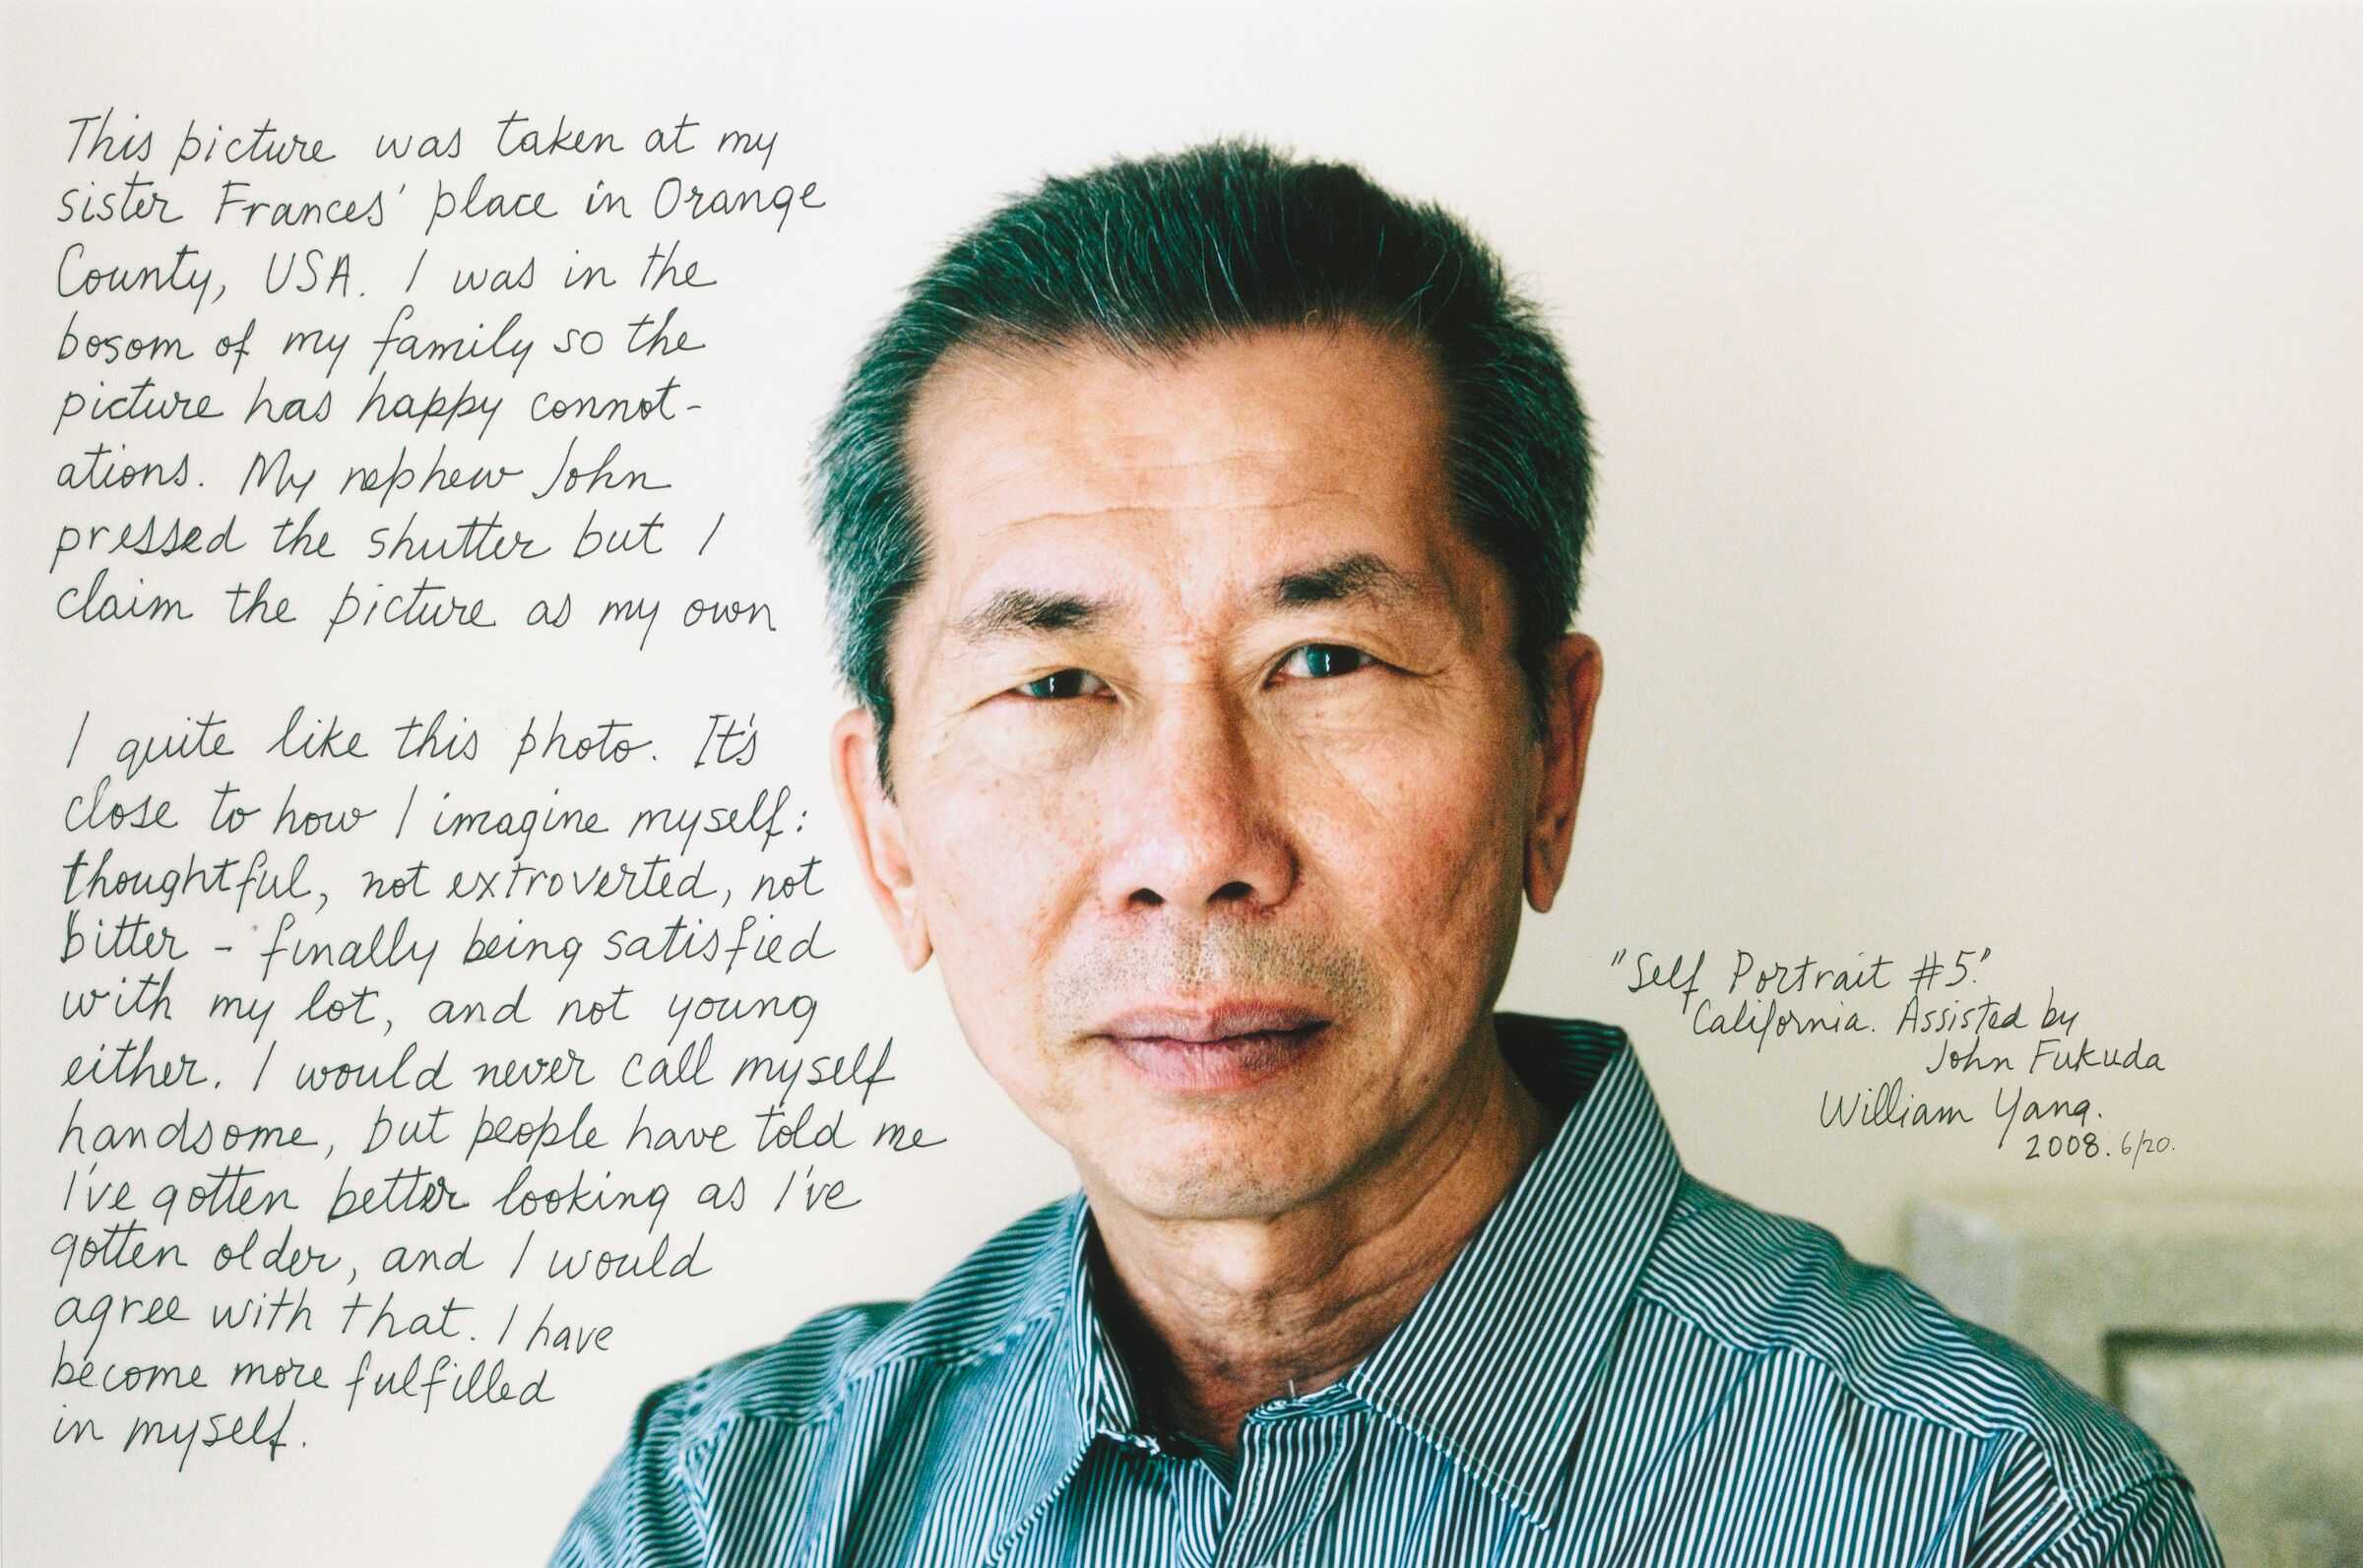 This picture was taken at my
sister Frances' place in Orange
County, USA. I was in the
bosom of my family so the
picture has happy connot-
ations. My nephew John
pressed the shutter but I
claim the picture as my own
I quite like this photo. It's
close to how I imagine myself:
thoughtful, not extroverted, not
bitter - finally being satisfied
with my lot, and not young
either. I would never call myself
handsome, but people have told me
I've gotten better looking as I've
gotten older, and I would
agree with that. I have
become more fulfilled
in myself.
"Self Portrait #5."
California. Assisted by
John Fukuda
William Yang.
2008. 6/20.